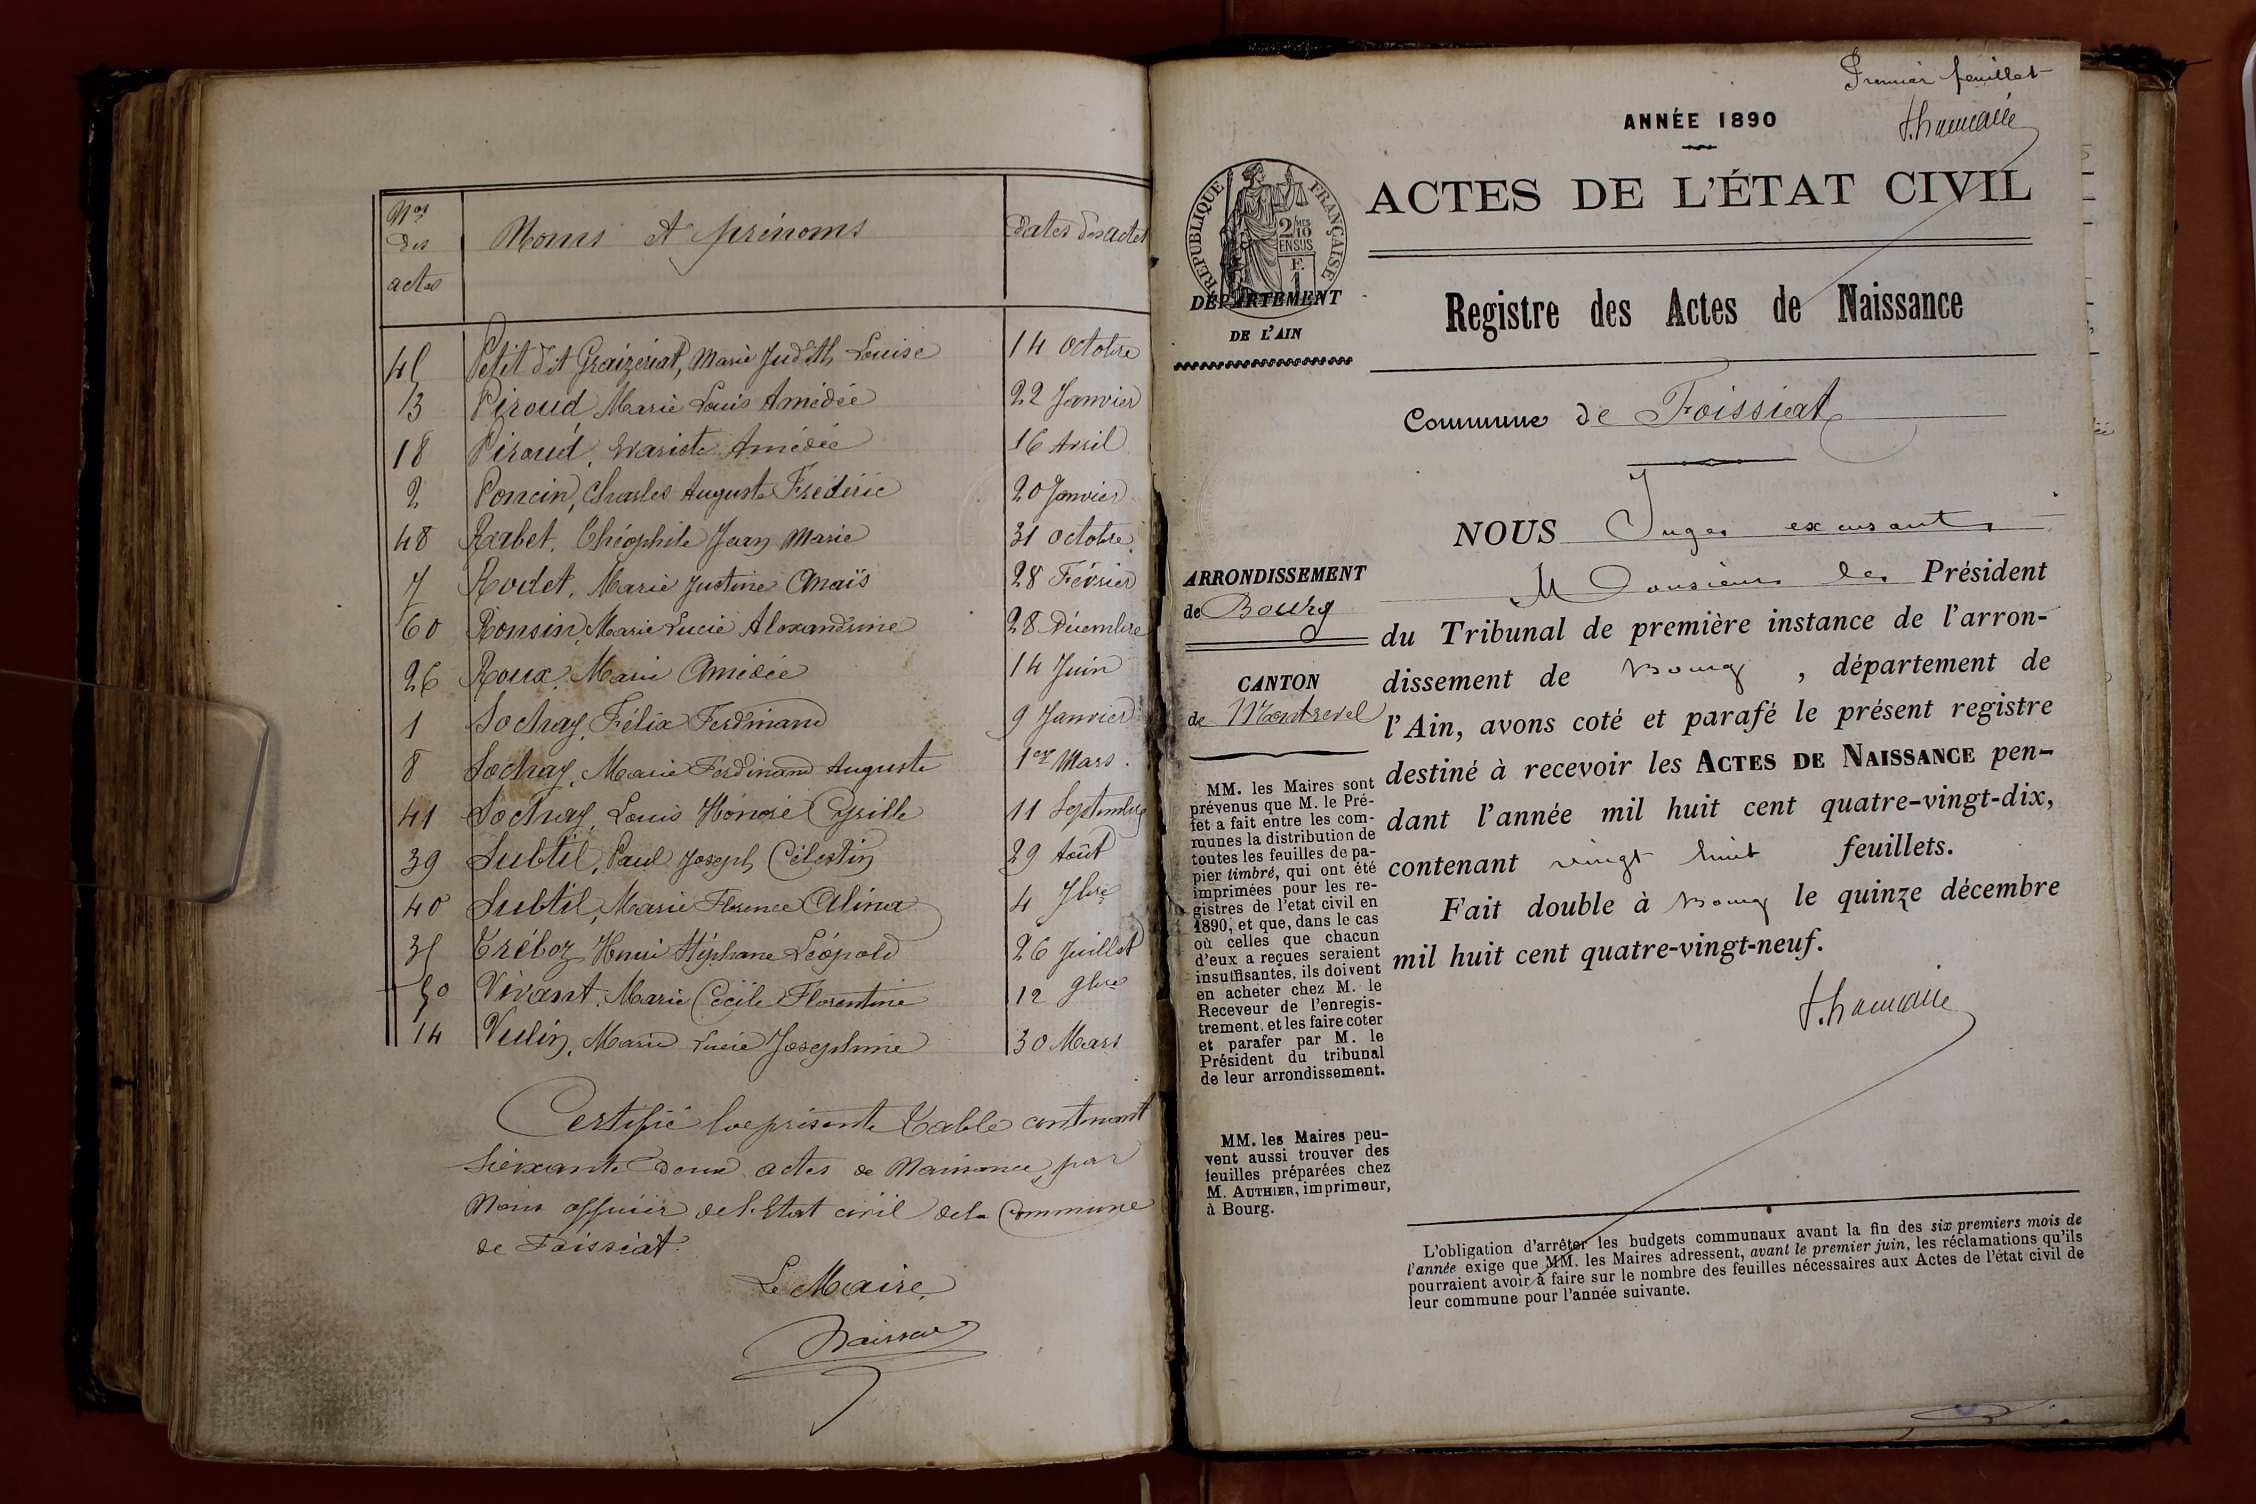 Nos des actes | Noms et prénoms | Dates des actes
45 Petit dit Graizériat, Marie Judith Louise 14 octobre
13 Piroud Marie Louis Amédée 22 Janvier
18 Piroud, Evariste Amédée 16 Avril
2 Poncin, Charles Auguste Frédéric 20 Janvier
48 Rabet, Théophile Jean Marie 31 octobre
7 Rodet, Marie Justine Anaïs 28 Février
60 Ronsin, Marie Lucie Alexandrine 28 Décembre
26 Roux, Marie Amédée 14 Juin
1 Sochay, Félix Ferdinand 9 Janvier
8 Sochay, Marie Ferdinand Auguste 1er Mars.
41 Sochay, Louis Honoré Cyrille 11 Septembre
39 Subtil, Paul Joseph Célestin 29 Août
40 Subtil, Marie Florence Alina 4 7bre
35 Tréboz Henri Stéphane Léopold 26 Juillet
50 Vivant, Marie Cécile Florentine 12 9bre
14 Vulin, Marie Lucie Joséphine 30 Mars
Certifié la présente Table contenant
Soixante Deux actes de Naissance, par
Nous officier de l'Etat civil de la Commune
de Foissiat.
Le Maire,
Premier feuillet
ANNÉE 1890
ACTES DE L'ÉTAT CIVIL
RÉPUBLIQUE FRANÇAISE
2/10 EN SUS
E.
1
DÉPARTEMENT
DE L'AIN
Registre des Actes de Naissance
Commune de Foissiat
ARRONDISSEMENT
de Bourg
CANTON
de Montrevel
MM. les Maires sont
prévenus que M. le Pré-
fet a fait entre les com-
munes la distribution de
toutes les feuilles de pa-
pier timbré, qui ont été
imprimées pour les re-
gistres de l'etat civil en
1890, et que, dans le cas
où celles que chacun
d'eux a reçues seraient
insuffisantes, ils doivent
en acheter chez M. le
Receveur de l'enregis-
trement, et les faire coter
et parafer par M. le
Président du tribunal
de leur arrondissement.
MM. les Maires peu-
vent aussi trouver des
feuilles préparées chez
M. AUTHIER, imprimeur,
à Bourg.
NOUS Juge excusant
Monsieur le Président
du Tribunal de première instance de l'arron-
dissement de Bourg, département de
l'Ain, avons coté et parafé le présent registre
destiné à recevoir les ACTES DE NAISSANCE pen-
dant l'année mil huit cent quatre-vingt-dix,
contenant vingt huit feuillets.
Fait double à Bourg le quinze décembre
mil huit cent quatre-vingt-neuf.
L'obligation d'arrêter les budgets communaux avant la fin des six premiers mois de
l'année exige que MM. les Maires adressent, avant le premier juin, les réclamations qu'ils
pourraient avoir à faire sur le nombre des feuilles nécessaires aux Actes de l'état civil de
leur commune pour l'année suivante.